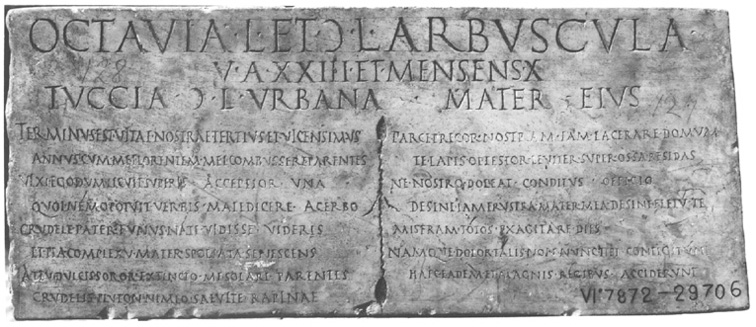 OCTAVIA · L · ET · Ɔ · L · ARBVSCVLA
V · A · XXIII · ET MENSENS X
TVCCIA Ɔ · L · VRBANA MATER EIVS
TERMINVS EST VITAE NOSTRAE TERTIVS ET VICENSIMVS
ANNVS CVM ME FLORENTEM MEI COMBVSSERE PARENTES
VIXI EGO DVM LICVIT SVPERIS ACCEPTIOR VNA
QVOI NEMO POTVIT VERBIS MALEDICERE ACERBO
CRVDELE PATER FVNVS NATE VIDISSE VIDERIS
ET PIA COMPLEXV MATER SPOLIATA SENESCENS
AT TV DVLCIS SOROR EXTINCTO ME SOLARE PARENTES
CRVDELIS PLVTON NIMIO SAEVITE RAPINAE
PARCITE PRECOR · NOSTRAM · IAM LACERARE DOMVM
TE LAPIS OPTESTOR LEVITER SVPER OSSA RESIDAS
NE NOSTRO DOLEAT CONDITVS OFFICIO
DESINE IAM FRVSTRA MATER MEA DESINE FLETV TE
MISERAM TOTOS EXAGITARE DIES
NAMQVE DOLOR TALIS NON NVNC TIBI CONTIGIT VNI
HAEC EADEM ET MAGNIS REGIBVS ACCIDERVNT
VI · 7872 – 29706